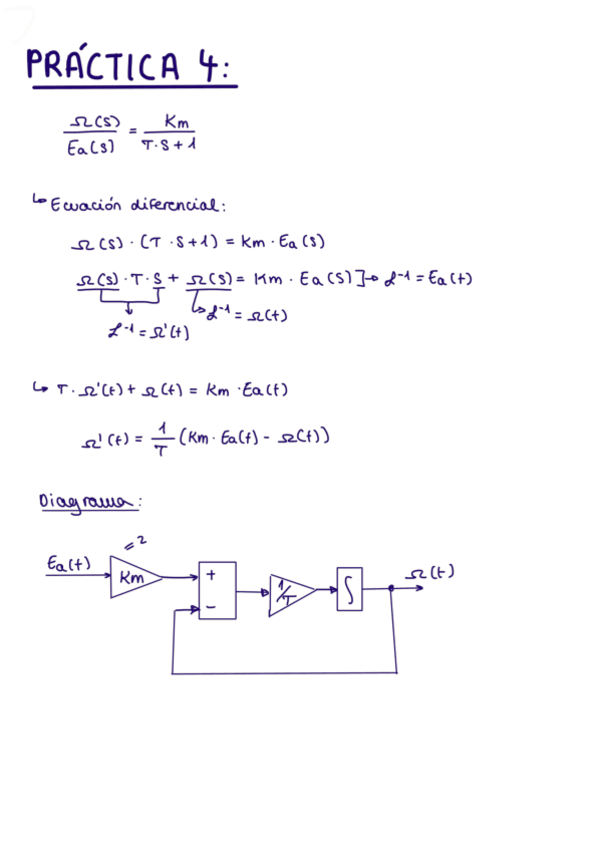 PRÁCTICA 4:
Ω(s)/Ea(s) = Km/(T·s+1)
↳ Ecuación diferencial:
Ω(s)·(T·s+1) = Km·Ea(s)
Ω(s)·T·s + Ω(s) = Km·Ea(s)]→ L⁻¹ = Ea(t)
↳ L⁻¹ = Ω(t)
L⁻¹ = Ω'(t)
↳ T·Ω'(t) + Ω(t) = Km·Ea(t)
Ω'(t) = 1/T (Km·Ea(t) - Ω(t))
Diagrama:
= 2
Ea(t) Km + - 1/T ∫ Ω(t)